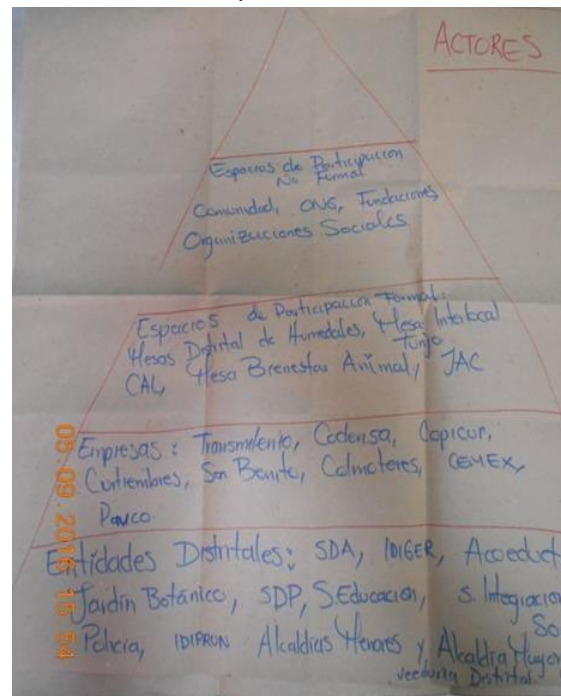 ACTORES
Espacios de Participacion
No Formal
Comunidad, ONG, Fundaciones,
Organizaciones Sociales
Espacios de Participacion Formal:
Mesas Distrital de Humedales, Mesa Interlocal
Tunjo
CAL, Mesa Bienestar Animal, JAC
Empresas: Transmilenio, Codensa, Copicur,
Curtiembres, San Benito, Colmotores, CEMEX,
Pavco.
Entidades Distritales: SDA, IDIGER, Acoeduct
Jardin Botánico, SDP, S.Educacion, S. Integracion
So
Policia, IDIPRON Alcaldias Menores y Alcaldia Mayor
veeduria Distrital.
05.09.2016 15 54